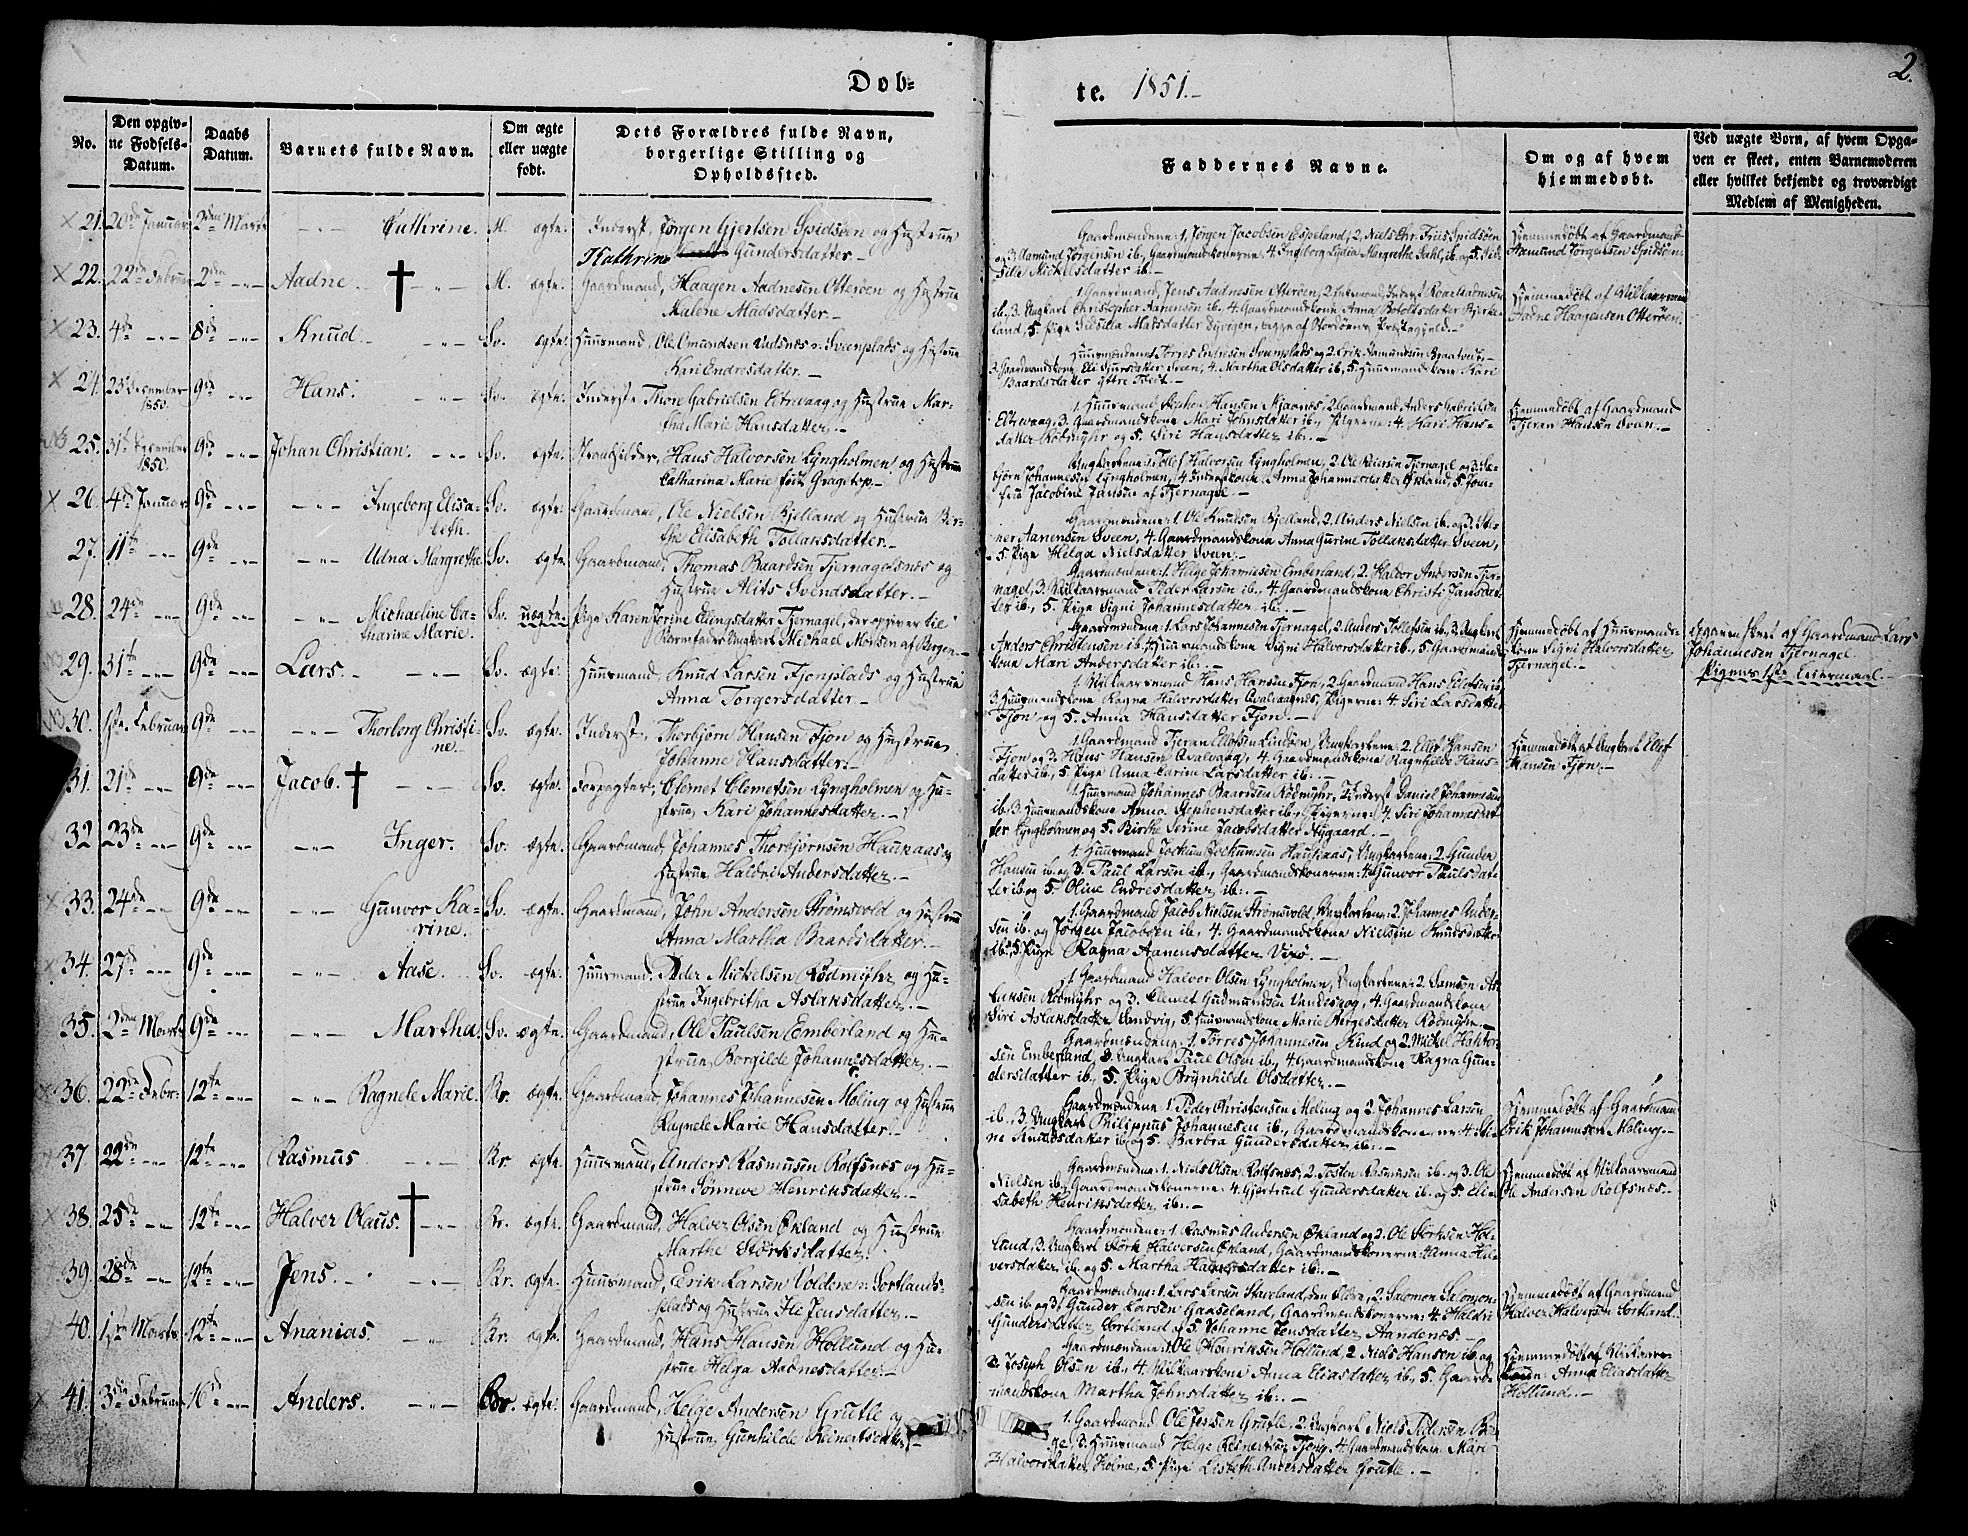 Dob=
te. 1851.-
2.
No.
Den opgiv-
ne Fødsels-
Datum.
Daabs
Datum.
Barnets fulde Navn.
Om ægte
eller uægte
født.
Dets Forældres fulde Navn,
borgerlige Stilling og
Opholdssted.
Faddernes Navne.
Om og af hvem
hjemmedøbt.
Ved uægte Børn, af hvem Opga-
ven er skeet, enten Barnemoderen
eller hvilket bekjendt og troværdigt
Medlem af Menigheden.
21. 20de Januar 2den Marts Cathrine. M. ægte. Inderst, Jørgen Gjertsen Spidsøen og Hustrue
Kathrine Gundersdatter.-
Gaardmændene: 1, Jørgen Jacobsen Espeland, 2, Niels Chr. Friis Spidsøen
og 3. Aamund Jørgensen ib., Gaardmandskonerne: 4. Ingeborg Lydia Margrethe Dahl, ib. og 5.
Mickelsdatter ib.-
Hjemmedøbt af Gaardmand
Aamund Jørgensen Spidsøen.
22. 22de Februar 2den Aadne. M. ægte. Gaardmand, Haagen Aadnesen Otterøen og Hustrue
Malene Madsdatter.-
1. Gaardmand, Jens Aadnesen Otterøen, 2.
ib., 3. Ungkarl Christopher Aanensen ib. 4. Gaardmandskone Anna
land, 5. Pige Madsdatter
Hjemmedøbt af Vilkaarsmand
Aadne Haagensen Otterøen.
23. 4de 8de Knud. Sv. ægte. Huusmand, Ole Omundsen Vadsnæs v. Sveenplads og Hustrue
Kari Endresdatter.-
Huusmændene 1. Torres Endresen Sveenplads og 2. Erik Aamundsen
3. Gaardmandskone, Eli Sjursdatter Sveen, 4. Martha Olsdatter ib, 5. Huusmandskone Kari
Baardsdatter ytre Tveit.-
24. 23 December 1850. 9de Hans. Sv. ægte. Inderste Thore Gabrielsen Eltrevaag og Hustrue Mar-
tha Marie Hansdatter.-
1. Huusmand, Hansen 2. Gaardmand Anders Gabrielsen
Eltrevaag, 3. Gaardmandskone Mari Johnsdatter ib., Pigerne: 4. Kari Hans-
datter Rødmyhr og 5. Siri Hansdatter ib.-
Hjemmedøbt af Gaardmand
Tjeran Hansen
25. 31te December 1850. 9de Johan Christian. Sv. ægte. Strandsidder, Hans Halvorsen Lyngholmen og Hustrue
Catharina Marie født Graatop.-
Ungkarlene: 1. Tollef Halvorsen Lyngholmen, 2. Ole Reiersen Tjernagel og 3.
bjørn Johannesen Lyngholmen, 4. Inderstkone Anna Johannesdatter Økland, 5. Jom-
frue Jacobine Jansen af Tjernagel.-
26. 4de Januar 9de Ingeborg Elisa-
beth. Sv. ægte. Gaardmand, Ole Nielsen Bjelland og Hustrue Ber-
the Elisabeth Tollaksdatter.-
Gaardmændene: 1. Ole Knudsen Bjelland, 2. Anders Nielsen ib. og 3.
Aanensen Sveen, 4. Gaardmandskone Anna Gurine Tollaksdatter Sveen,
5. Pige Helga Nielsdatter Sveen.-
27. 11te 9de Udna Margrethe. Sv. ægte. Gaardmand, Thomas Baardsen Tjernagelsnæs og
Hustrue Alits Svendsdatter.-
Gaardmændene: 1. Helge Johannesen Emberland, 2. Haldor Andersen Tjer-
nagel, 3. Vilkaarsmand Peder Larsen ib., 4. Gaardmandskone Christi Jansdat-
ter ib., 5. Pige Signi Johannesdatter ib.-
28. 24de 9de Michaeline Ca-
tharine Marie. Sv. uægte. Pige Karen Jorine Ellingsdatter Tjernagel, der opgiver til
Barnefader Ungkarl Michael Monsen af Bergen.-
Gaardmændene 1. Lars Johannesen Tjernagel, 2. Anders Tollefsen ib., 3. Ungkarl
Anders Christensen ib. 4. Huusmandskone Signi Halvorsdatter ib., 5. Gaardmands-
kone Mari Andersdatter ib.-
Hjemmedøbt af Huusmands-
kone Signi Halvorsdatter
Tjernagel.-
Opgaven skeet af Gaardmand Lars
Johannesen Tjernagel
Pigens 1ste Leiermaal.-
29. 31te 9de Lars. Sv. ægte. Huusmand, Knud Larsen Fjonplads og Hustrue
Anna Torgersdatter.-
1. Vilkaarsmand Hans Hansen Fjon, 2. Gaardmand Hans Ellefsen ib.
3. Huusmandskone Ragna Halvorsdatter Qvalvaagnæs, Pigerne: 4. Siri Larsdatter
Fjon og 5. Anna Hansdatter Fjon.-
30. 1ste Februar 9de Thorborg Christi-
ne. Sv. ægte. Inderst, Thorbjørn Hansen Fjon og Hustrue
Johanne Hansdatter.-
1. Gaardmand Tjeran Ellefsen Lindøen, Ungkarlene: 2. Ellef Hansen
Fjon og 3. Hans Hansen Qvalvaag, 4. Gaardmandskone Ragnhilde Hans-
datter ib., 5. Pige Anna Carine Larsdatter ib.-
Hjemmedøbt af Ungkarl Ellef
Hansen Fjon.-
31. 21de 9de Jacob. Sv. ægte. Forpagter, Clemet Clemetsen Lyngholmen og Hu-
strue, Kari Johannesdatter.-
1. Huusmand Johannes Baardsen Rødmyhr, 2. Inderst Daniel Johannesen
ib. 3. Huusmandskone Anna Stephensdatter ib., Pigerne: 4. Siri Johannesdat-
ter Lyngholmen og 5. Birthe Serine Jacobsdatter Nygaard.-
32. 23de 9de Inger. Sv. ægte. Gaardmand, Johannes Thorbjørnsen Haukaas og
Hustrue Haldri Andersdatter.-
1. Huusmand Jockum Jockumsen Haukaas, Ungkarlene: 2. Gunder
Hansen ib. og 3. Paul Larsen ib., Gaardmandskonerne: 4. Gunvor Paulsdat-
ter ib. og 5. Oline Endresdatter ib.-
33. 24de 9de Gunvor Ka-
rine. Sv. ægte. Gaardmand, John Andersen Strømsvold og Hustrue
Anna Martha Baardsdatter.-
1. Gaardmand Jacob Nielsen Strømsvold, Ungkarlene: 2. Johannes Ander-
sen ib. og Jørgen Jacobsen ib., 4. Gaardmandskone Nielsine Knudsdatter
ib., 5. Pige Ragna Aanensdatter Vixø.-
34. 27de 9de Aase. Sv. ægte. Huusmand, Peder Mickelsen Rødmyhr og Hu-
strue Ingebritha Aslaksdatter.-
1. Gaardmand Halvor Olsen Lyngholmen, Ungkarlene: 2. Samson As-
laksen Rødmyhr og 3. Clemet Gudmundsen Vandeskog, 4. Gaardmandskone
Siri Aslaksdatter Sandvig, 5. Huusmandskone Marie Børgesdatter Rødmyhr.-
35. 2den Marts 9de Martha. Sv. ægte. Gaardmand, Ole Paulsen Emberland og Hu-
strue Borgilde Johannesdatter.-
Gaardmændene: 1. Torres Johannesen Kind og 2. Mickel
sen Emberland, 3. Ungkarl Paul Olsen ib., 4. Gaardmandskone Ragna Gun-
dersdatter ib., 5. Pige Brynhilde Olsdatter.-
36. 22de Febr. 12te Ragnele Marie. Br. ægte. Gaardmand Johannes Johannesen Meling og Hustrue
Ragnele Marie Hansdatter.-
Gaardmændene: 1. Peder Christensen Meling og 2. Johannes Larsen
ib., 3. Ungkarl Philippus Johannesen ib., Gaardmandskonerne: 4.
ne Andersdatter ib. og 5. Barbra Gundersdatter ib.-
Hjemmedøbt af Gaardmand
Erik Johannesen Meling.-
37. 22de 12te Rasmus Br. ægte. Huusmand, Anders Rasmusen Rolfsnæs og Hu-
strue Sønneve Henriksdatter.-
Gaardmændene: 1. Niels Olsen Rolfsnæs, 2. Tosten Rasmusen ib. og 3. Ole
Nielsen ib., Gaardmandskonerne: 4. Gjertrud Gundersdatter ib. og 5. Eli-
sabeth Henriksdatter ib.-
Hjemmedøbt af Vilkaarsmand
Ole Andersen Rolfsnæs.-
38. 25de 12te Halver Olaus. Br. ægte. Gaardmand, Halver Olsen Økland og Hustrue
Marthe Størksdatter.
Gaardmændene: 1. Rasmus Andersen Økland og 2. Ole Størksen Hol-
lund, 3. Ungkarl Størk Halversen Økland, Gaardmandskonerne: 4. Anna Hal-
versdatter ib. og 5. Martha Halversdatter ib.-
39. 28de 12te Jens. Br. ægte. Huusmand, Erik Larsen Voldene v. Sortlands-
plads og Hustrue Ile Jensdatter.-
Gaardmændene: 1. Lars Larsen Staveland, den Eldre, 2. Salomon Salomon-
sen ib. og 3. Gunder Larsen Gaaseland, Gaardmandskonerne: 4. Haldri
Gundersdatter Sortland og 5. Johanne Jensdatter Aandenæs.-
Hjemmedøbt af Gaardmand
Halver Halversen Sortland.
40. 1ste Marts 12te Ananias. Br. ægte. Gaardmand, Hans Hansen Hollund og Hu-
strue Helga Aadnesdatter.-
Gaardmændene: 1. Ole Henriksen Hollund, 2. Niels Hansen ib. og
3. Joseph Olsen ib., 4. Vilkaarskone Anna Eliasdatter ib., 5. Gaard-
mandskone Martha Johnsdatter ib.-
Hjemmedøbt af Vilkaars-
kone: Anna Eliasdatter
Hollund.-
41. 3die Februar 16de Anders. Br. ægte. Gaardmand, Helge Andersen Grutle og
Hustrue, Gunhilde Reinertsdatter.-
1. Gaardmand Ole Jensen Grutle, 2. Ungkarl Niels Pedersen
3. Huusmand Helge Reinertsen Fjon, 4. Gaardmandskone Mari
Halvorsdatter, Holme, 5. Pige Lisbeth Andersdatter Grutle.-